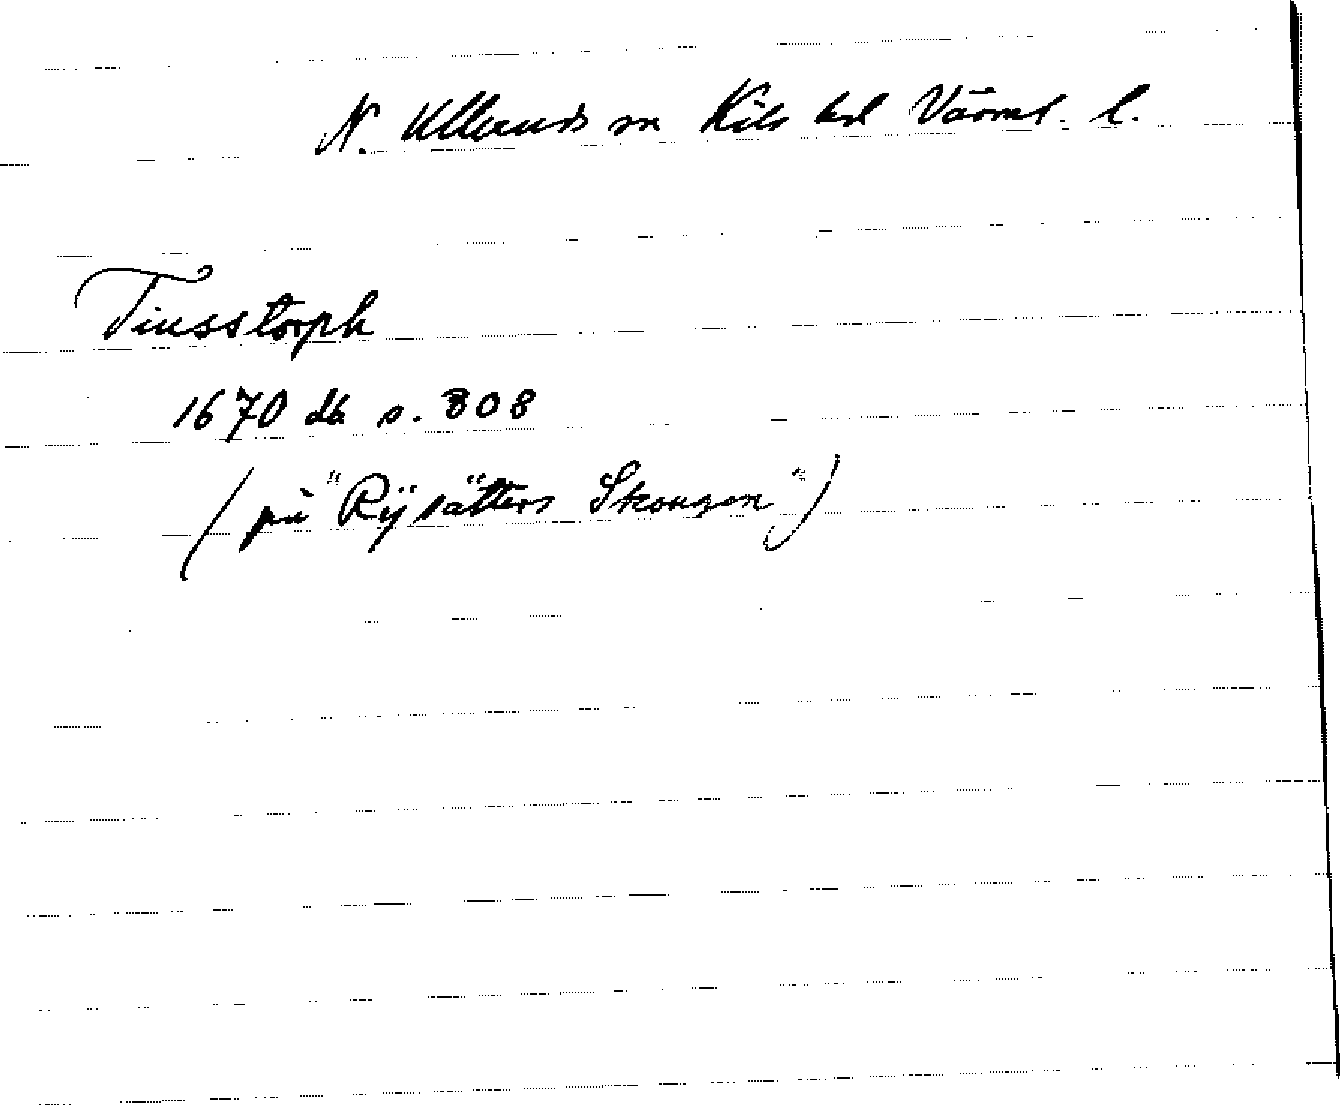 N. Ulleruds sn Kils hd Värml. l.
Tiusstorph
1670 db s. 808
(på "Rÿsätters Skougen")